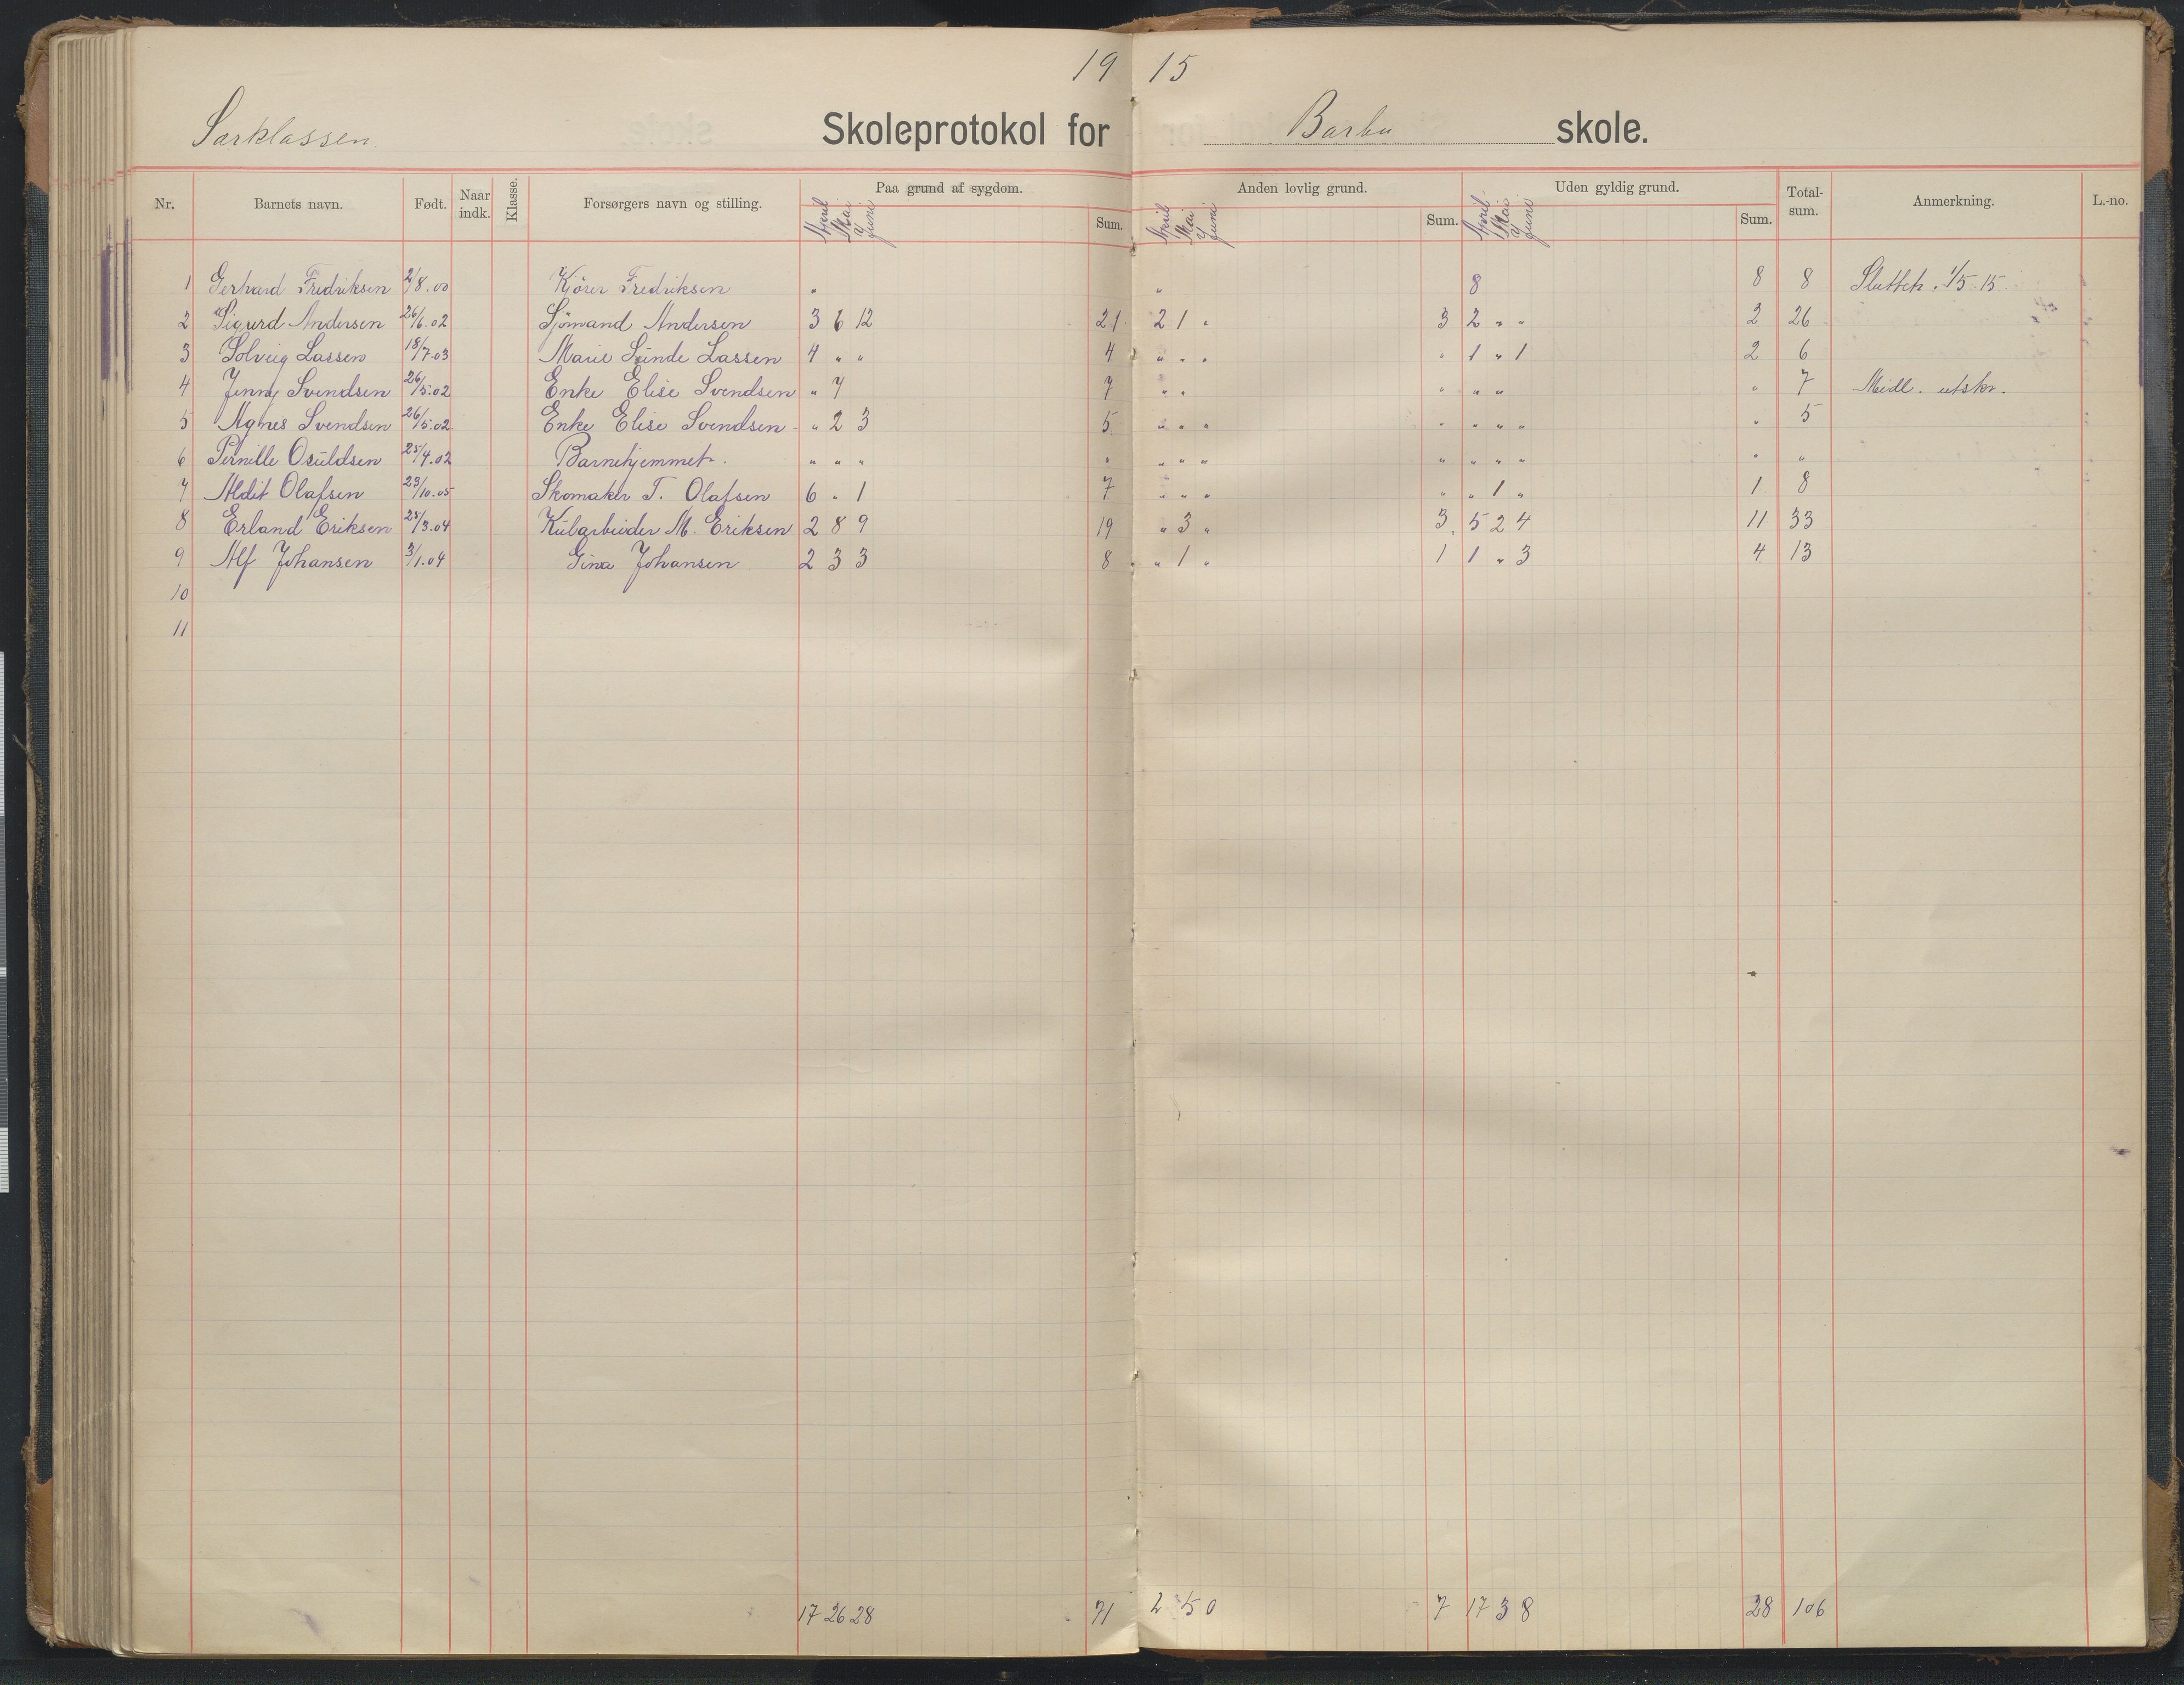 19 15
Særklassen. Skoleprotokol for Barbu skole.
Nr. Barnets navn. Født. Naar indk. Klasse. Forsørgers navn og stilling. Paa grund af sygdom. Anden lovlig grund. Uden gyldig grund. Total-sum. Anmerkning. L.-no.
April Mai Juni Sum. April Mai Juni Sum. April Mai Juni Sum.
1 Gerhard Fredriksen 2/8.00 Kjører Fredriksen " " 8 8 8 Sluttet 1/5.15.
2 Sigurd Andersen 26/6.02 Sjömand Andersen 3 6 12 21 2 1 " 3 2 " " 2 26
3 Solveig Lassen 18/7.03 Marie Sünde Lassen 4 " " 4 " " " " 1 " 1 2 6
4 Jenny Svendsen 26/5.02 Enke Elise Svendsen " 7 7 " " " " " " 7 Midl. utskr.
5 Agnes Svendsen 26/5.02 Enke Elise Svendsen " 2 3 5 " " " " " " " " 5
6 Pernille Osüldsen 25/4.02 Barnehjemmet. " " " " " " " " " " " " "
7 Aldit Olafsen 23/10.05 Skomaker T. Olafsen 6 " 1 7 " " " " " 1 " 1 8
8 Erland Eriksen 25/3.04 Külarbeider M. Eriksen 2 8 9 19 " 3 " 3 5 2 4 11 33
9 Alf Johansen 3/1.04 Gina Johansen 2 3 3 8 " 1 " 1 1 " 3 4 13
10
11
17 26 28 71 2 5 0 7 17 3 8 28 106